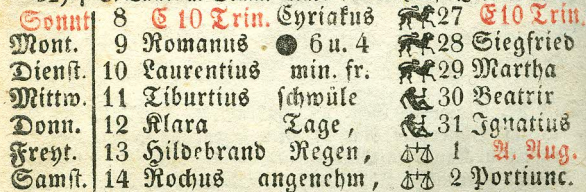 Sonnt 8 E 10 Trin. Cyriakus 27 E10 Trin.
Mont. 9 Romanus ● 6 u. 4 28 Siegfried
Dienst. 10 Laurentius min. fr. 29 Martha
Mittw. 11 Tiburtius schwüle 30 Beatrix
Donn. 12 Klara Tage, 31 Ignatius
Freyt. 13 Hildebrand Regen, 1 A. Aug.
Samst. 14 Rochus angenehm, 2 Portiunc.